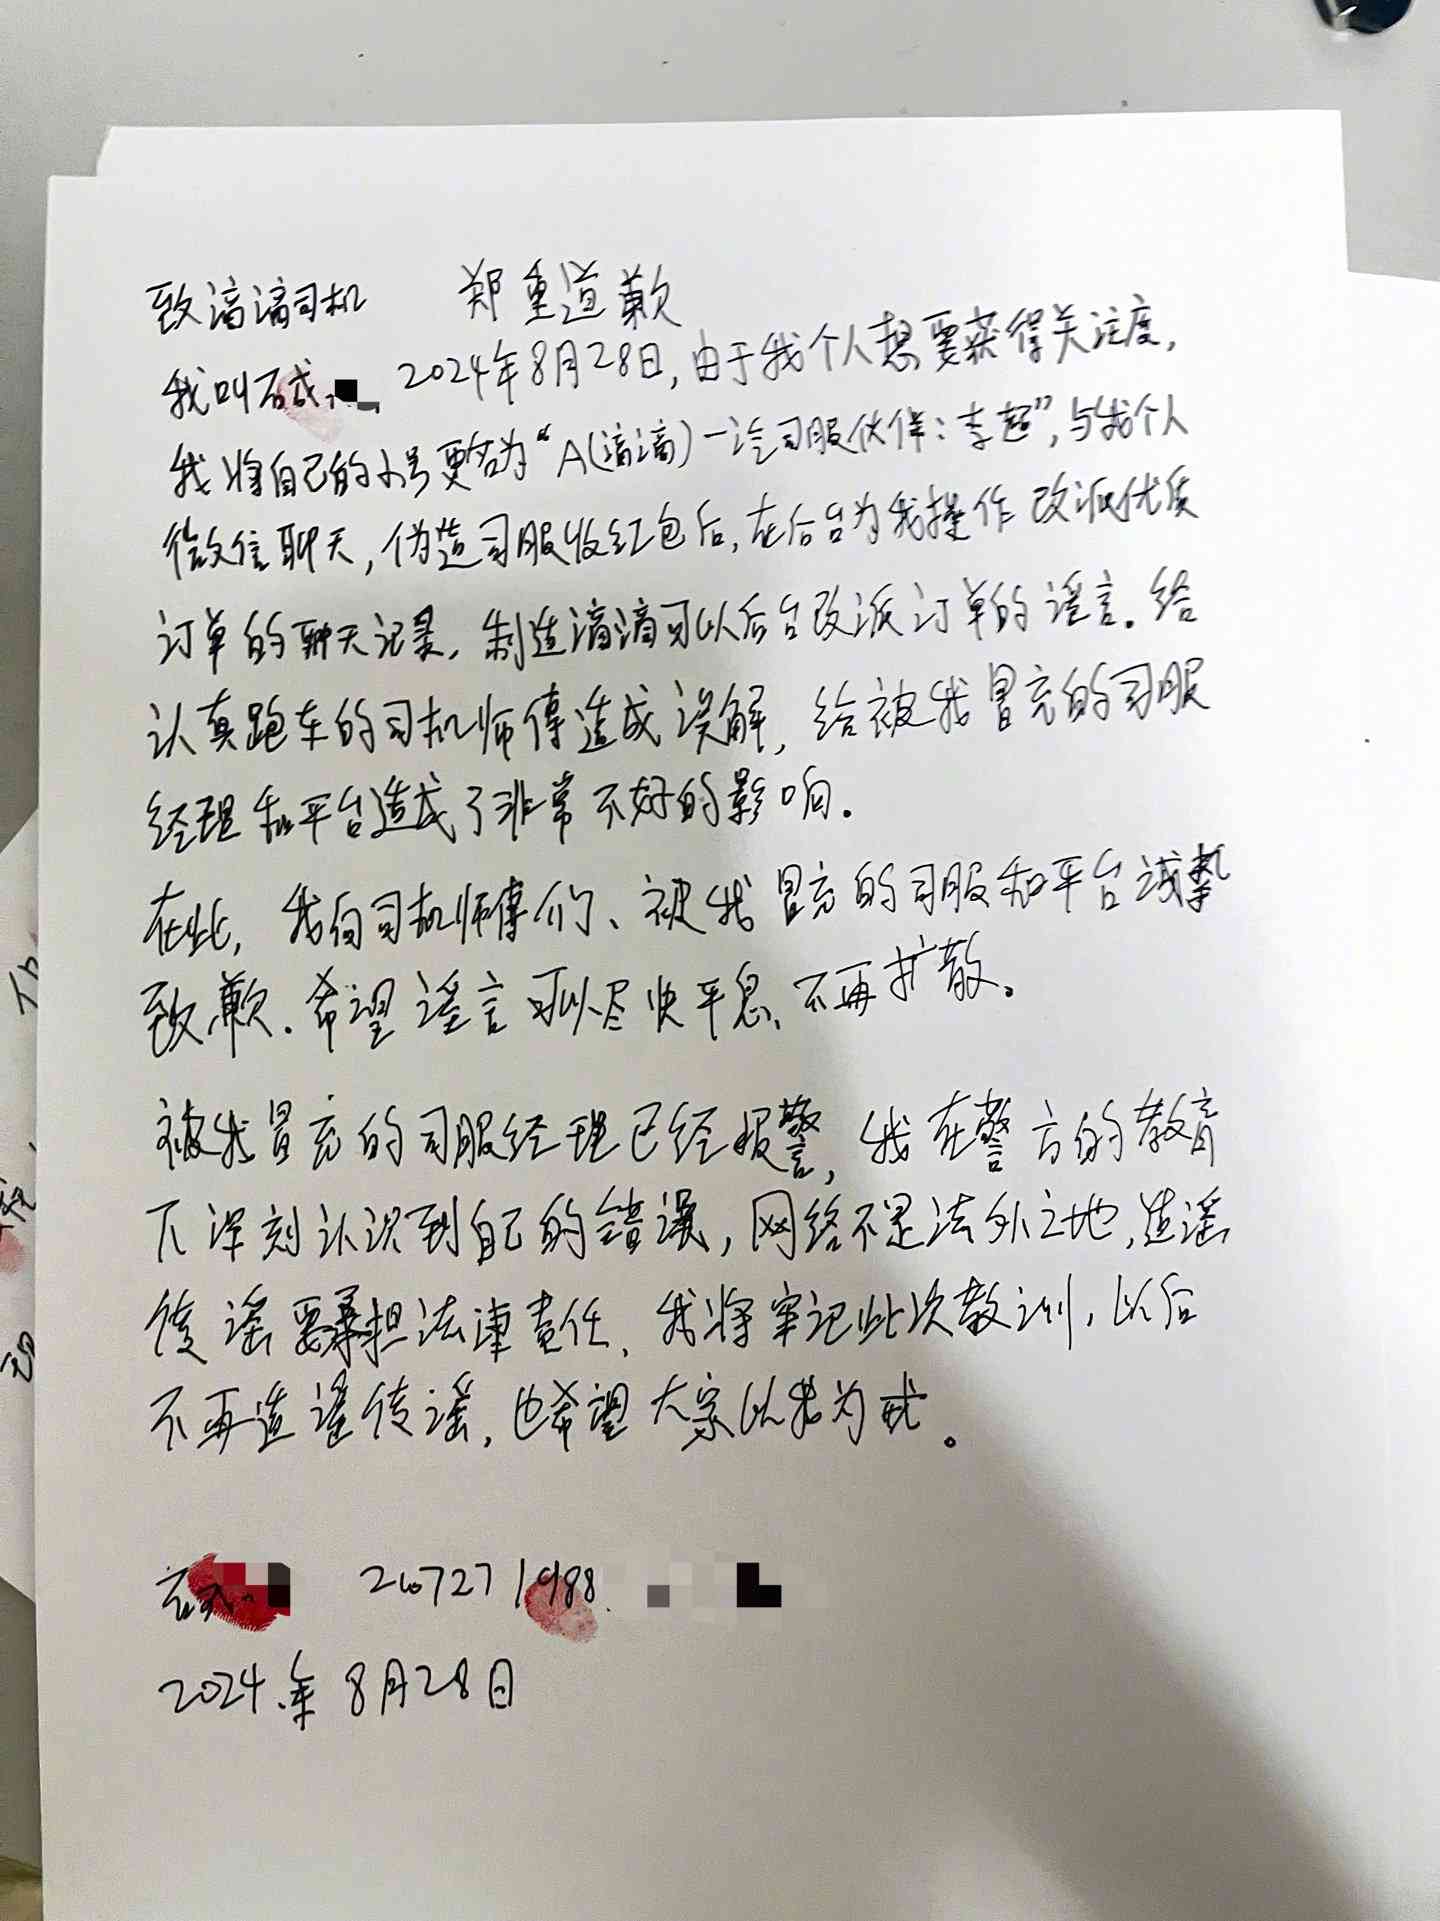 致滴滴司机 郑重道歉
我叫 2024年8月28日,由于我个人想要获得关注度,
我将自己的小号更名为“A(滴滴)一汽司服伙伴:李超”,与我个人
微信聊天,伪造司服收红包后,在后台为我操作改派优质
订单的聊天记录,制造滴滴可以后台改派订单的谣言.给
认真跑车的司机师傅造成误解,给被我冒充的司服
经理和平台造成了非常不好的影响.
在此,我向司机师傅们、被我冒充的司服和平台诚挚
致歉.希望谣言可以尽快平息、不再扩散。
被我冒充的司服经理已经报警,我在警方的教育
下深刻认识到自己的错误,网络不是法外之地,造谣
传谣要承担法律责任,我将牢记此次教训,以后
不再造谣传谣,也希望大家以我为戒。
1988
2024年8月28日